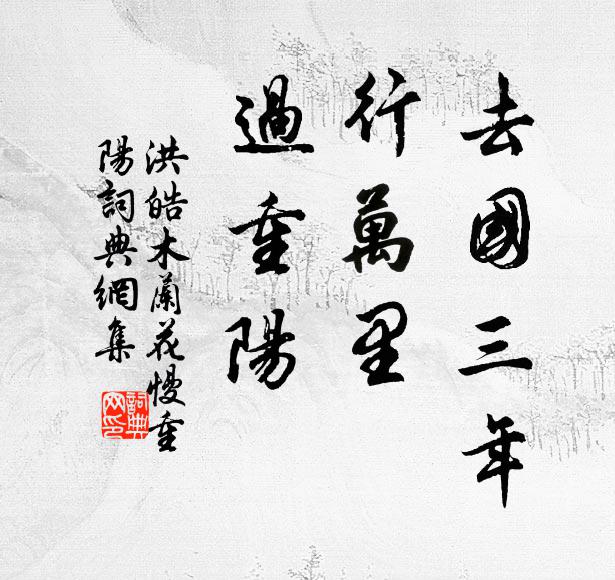 去國三年
行萬里
過重陽
洪皓木蘭花慢重
陽詞典網集
詞典
网印